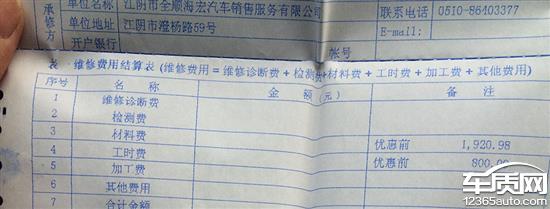 承修方
单位名称 江阴市全顺海宏汽车销售服务有限公司 联系电话 0510-86403377
单位地址 江阴市澄杨路59号 E-mail:
开户银行 帐号
表 维修费用结算表(维修费用=维修诊断费+检测费+材料费+工时费+加工费+其他费用)
序号 名 称 金 额(元) 备 注
1 维修诊断费
2 检测费
3 材料费 优惠前 1,920.98
4 工时费 优惠前 800.00
5 加工费
6 其他费用
7 合计金额
车质网
12365auto.com